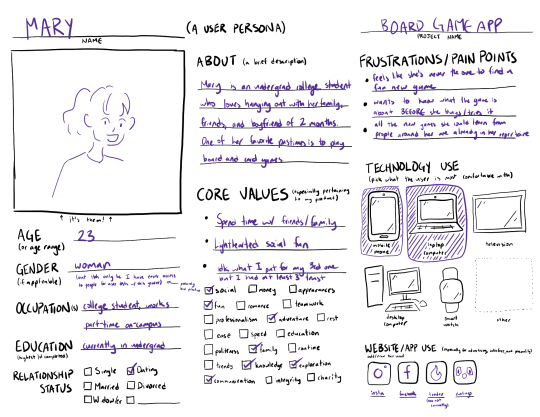 MARY
NAME
(A USER PERSONA)
BOARD GAME APP
PROJECT NAME
ABOUT (a brief description)
Mary is an undergrad college student
who loves hanging out with her family,
friends, and boyfriend of 2 months.
One of her favorite pastimes is to play
board and card games.
FRUSTRATIONS/PAIN POINTS
• feels like she's never the one to find a
fun new game
• wants to know what the game is
about BEFORE she buys/tries it
• all the new games she could learn from
people around her are already in her repertoire
↑ it's them! ↑
AGE 23
(or age range)
GENDER woman
(if applicable)
OCCUPATION(s) college student, works
part-time on-campus
EDUCATION currently in undergrad
(highest lvl completed)
RELATIONSHIP STATUS
Single Dating
Married Divorced
Widower
CORE VALUES (especially pertaining
to my product)
• Spend time w/ friends/family
• Lighthearted social fun
• idk what I put for my 3rd one
but I had at least 3 traits
social money appearances
fun romance teamwork
professionalism adventure rest
ease speed education
politeness family routine
trends knowledge exploration
communication integrity charity
TECHNOLOGY USE
(fill what the user is most comfortable with)
mobile phone
laptop computer
television
desktop computer
smart watch
other
WEBSITE/APP USE
insta
facebook
tinder